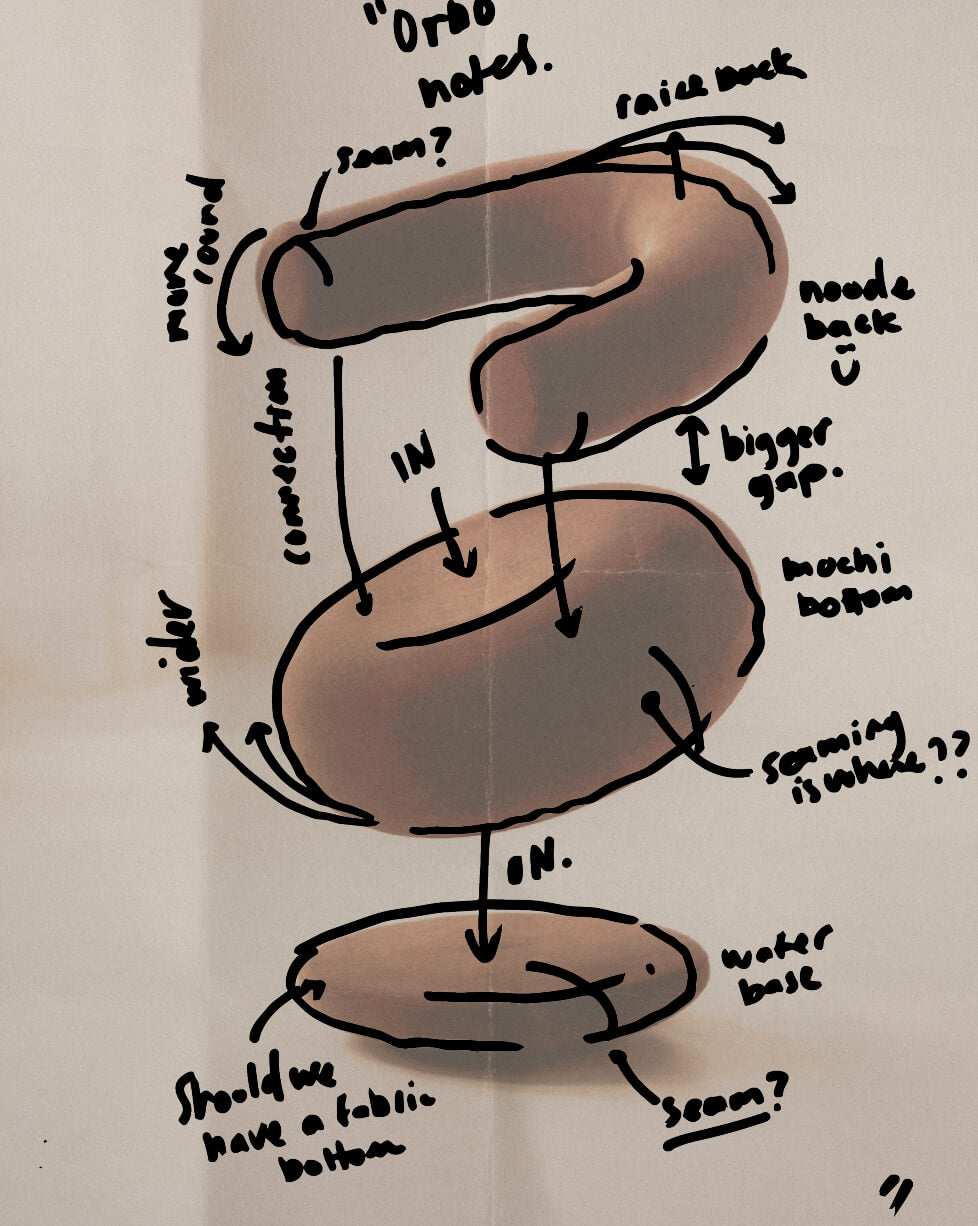 "Orbo
notes.
raise back
seam?
more
round
noode
back
connection
IN
bigger
gap.
mochi
bottom
wider
seaming
is where??
IN.
water
base
Should we
have a fabric
bottom
seam?
"